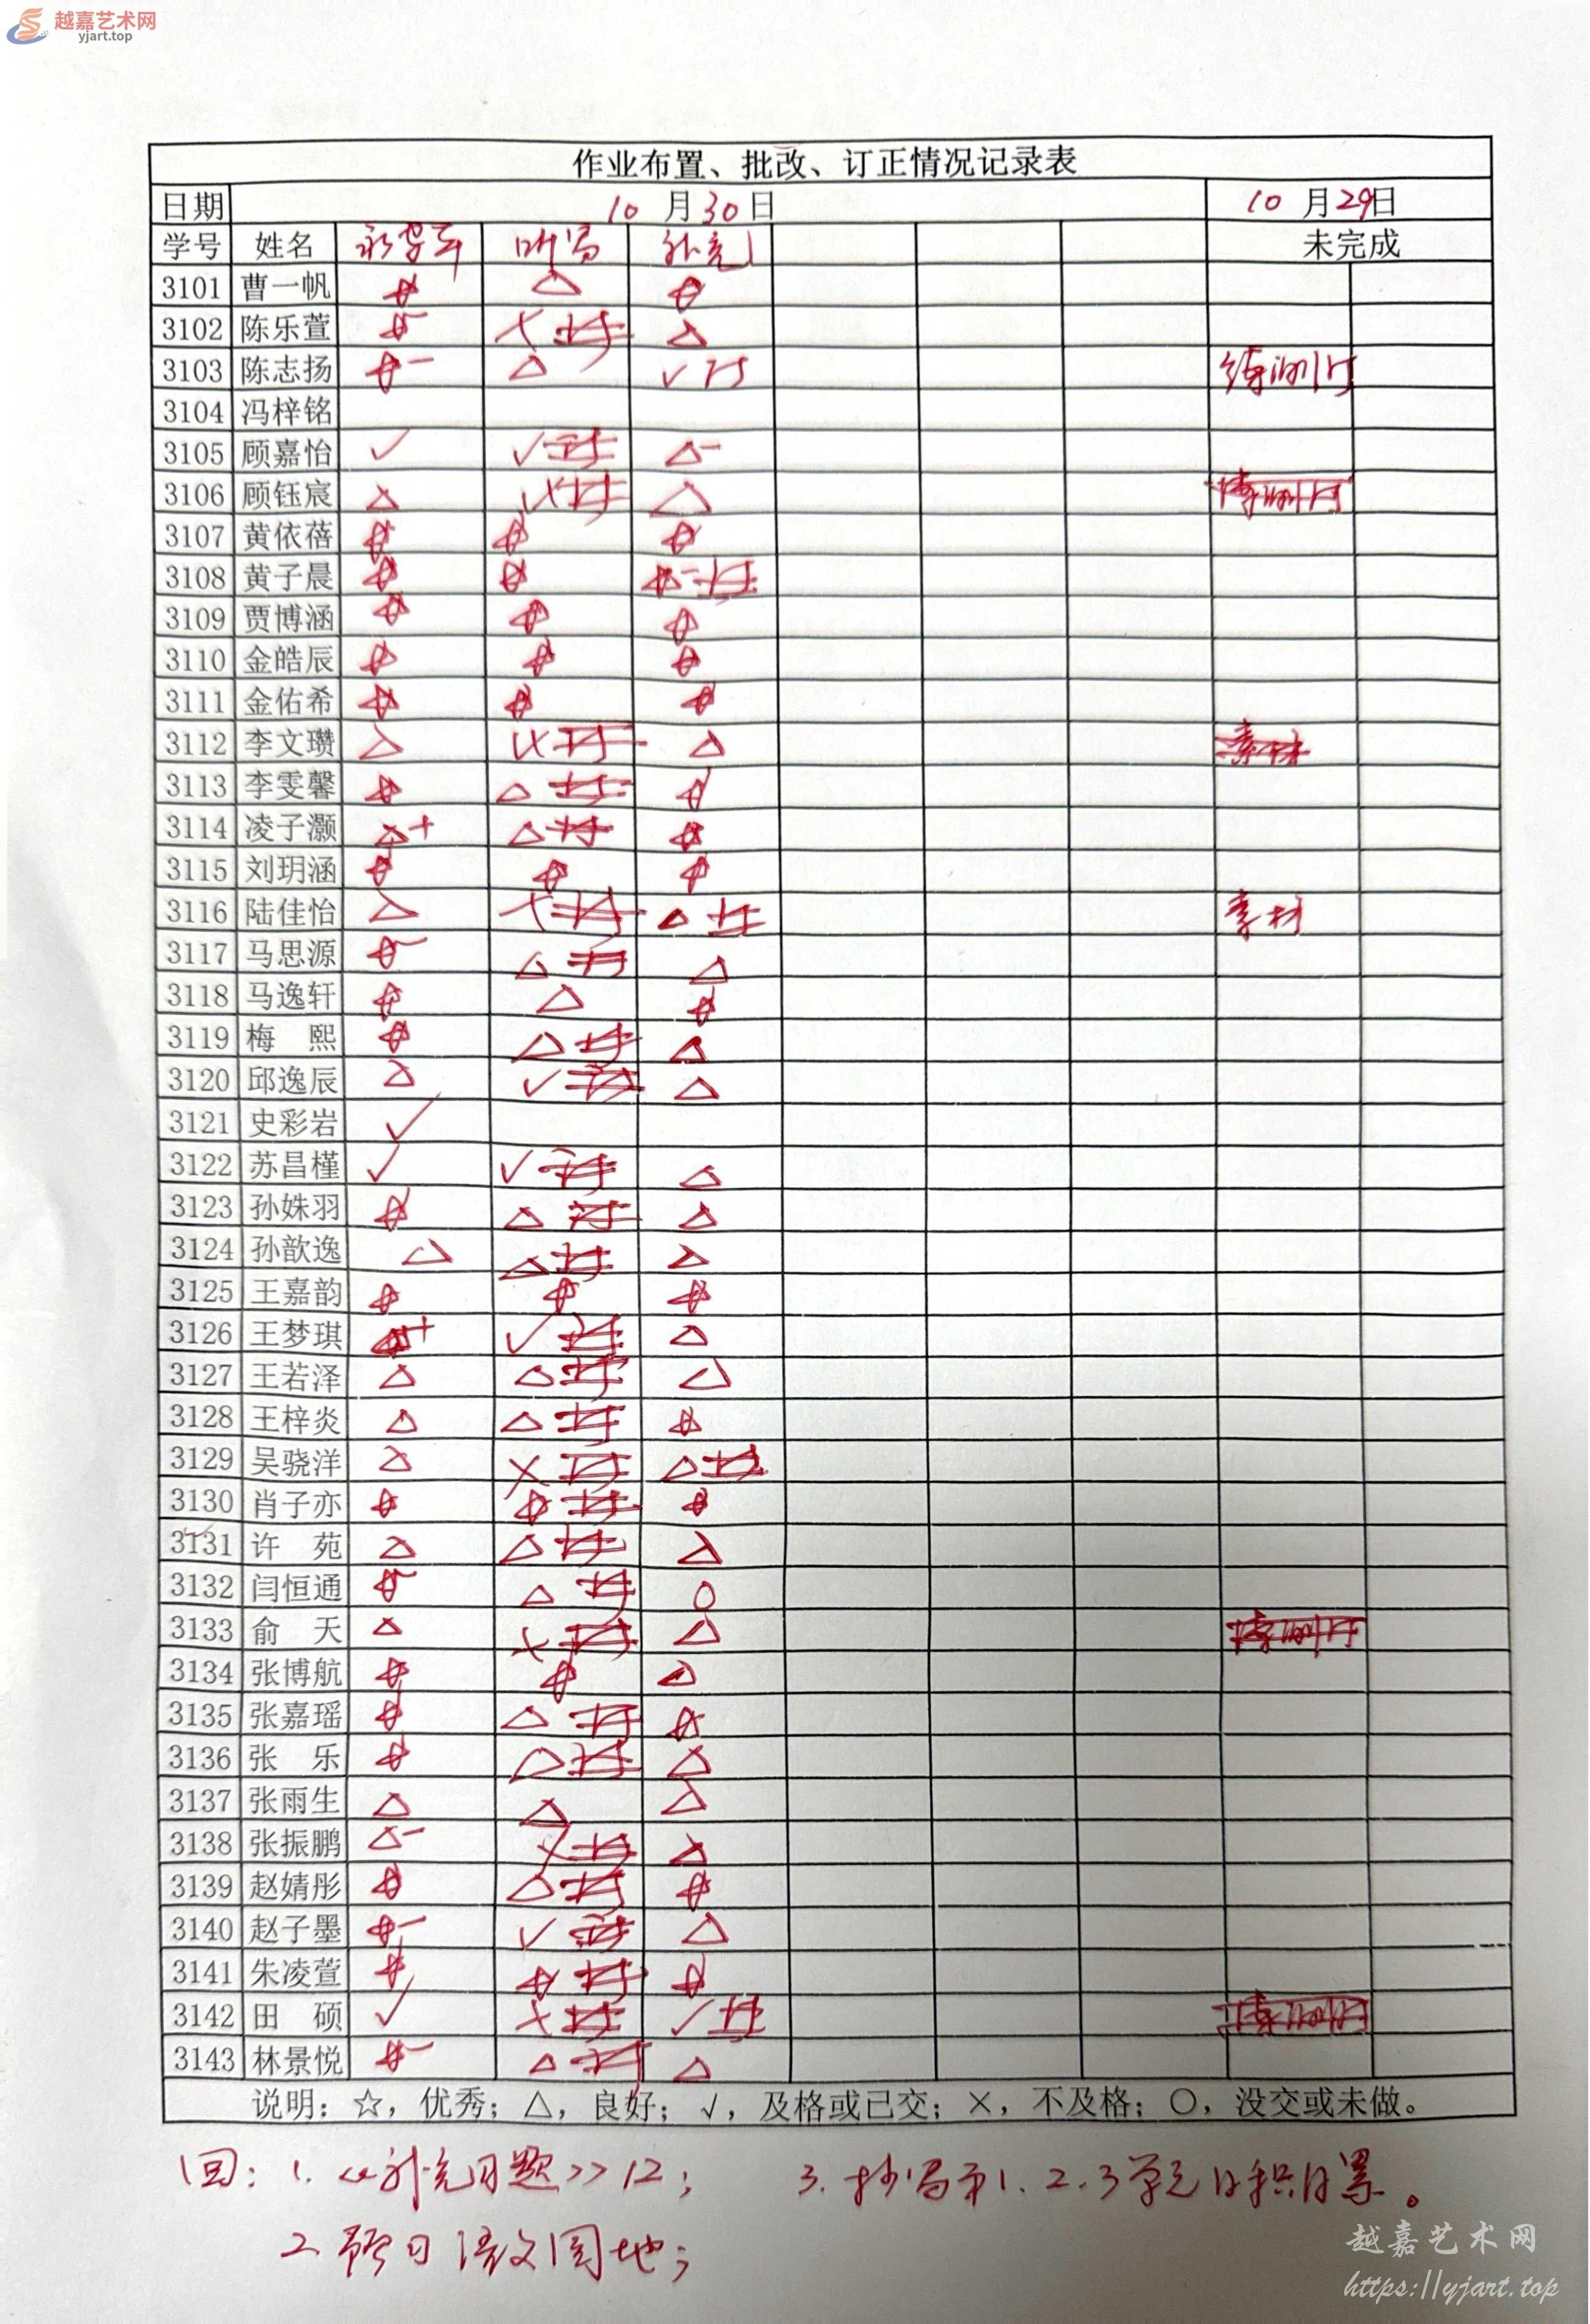 越嘉艺术网
yjart.top
作业布置、批改、订正情况记录表
日期 10 月 30 日 10 月 29 日
学号 姓名 听写 补充 未完成
3101 曹一帆 ☆ △ ☆
3102 陈乐萱 ☆- × 订 △
3103 陈志扬 ☆- △ √ 订
3104 冯梓铭
3105 顾嘉怡 √ √ 订 △-
3106 顾钰宸 △ 订 △
3107 黄依蓓 ☆ ☆ ☆
3108 黄子晨 ☆ ☆ ☆- 订
3109 贾博涵 ☆ ☆ ☆
3110 金皓辰 ☆ ☆ ☆
3111 金佑希 ☆ ☆ ☆
3112 李文瓒 △ 订 △ 素材
3113 李雯馨 ☆ △ 订 ☆
3114 凌子灏 △+ △ 订 ☆
3115 刘玥涵 ☆ ☆ ☆
3116 陆佳怡 △ × 订 △ 订 素材
3117 马思源 ☆- △ 订 △
3118 马逸轩 ☆ △ ☆
3119 梅 熙 ☆ △ 订 △
3120 邱逸辰 △ √ 订 △
3121 史彩岩 √
3122 苏昌槿 √ √ 订 △
3123 孙姝羽 ☆ △ 订 △
3124 孙歆逸 △ △ 订 △
3125 王嘉韵 ☆ ☆ ☆
3126 王梦琪 + √ 订 △
3127 王若泽 △ △ 订 △
3128 王梓炎 △ △ 订 ☆
3129 吴骁洋 △ × 订 △ 订
3130 肖子亦 ☆ ☆ 订 ☆
3131 许 苑 △ △ 订 △
3132 闫恒通 ☆- △ 订 ○
3133 俞 天 △ × 订 △
3134 张博航 ☆ ☆ △
3135 张嘉瑶 ☆ △ 订 ☆
3136 张 乐 ☆ △ 订 △
3137 张雨生 △ △ △
3138 张振鹏 △- × 订 △
3139 赵婧彤 ☆ △ 订 ☆
3140 赵子墨 ☆- √ 订 △
3141 朱凌萱 ☆ ☆ 订 ☆
3142 田 硕 √ × 订 √ 订
3143 林景悦 ☆- △ 订 △
说明：☆，优秀；△，良好；√，及格或已交；×，不及格；○，没交或未做。
回：1.《补充习题》12； 3.抄写第1、2、3单元日积月累。
2.预习语文园地；
越嘉艺术网
https://yjart.top